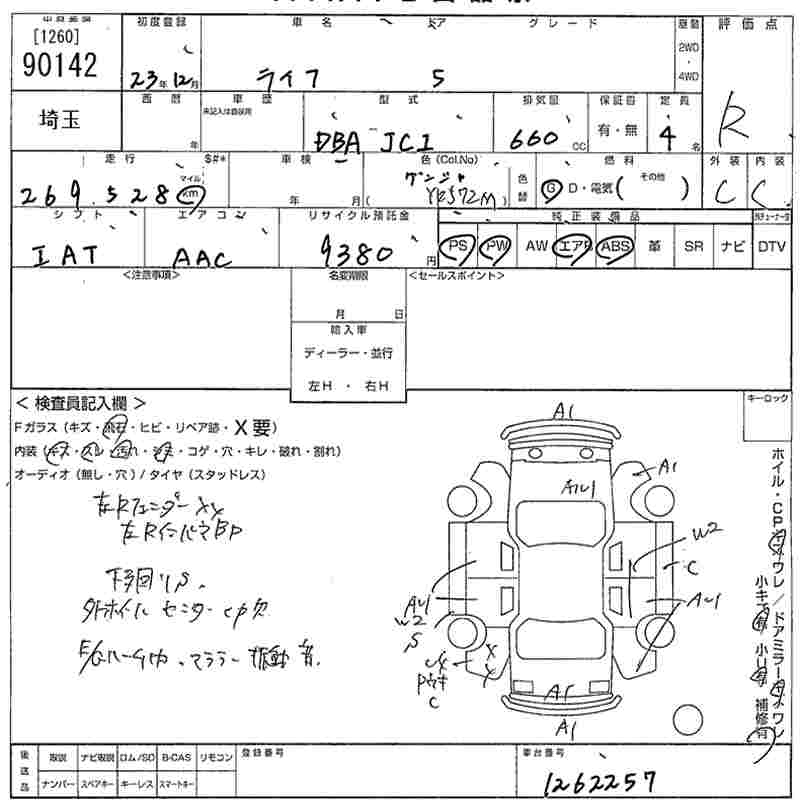 [1260]
初度登録 車名 ドア グレード 駆動 評価点
90142
23年12月 ライフ 5 2WD・4WD R
埼玉 西暦 車歴 型式 排気量 保証書 定員
未記入は自家用
年 DBA JC1 660 CC 有・無 4名
走行 $#* 車検 色(Col.No) 燃料 外装 内装
269,528 マイル km 年 月( YR572M) 色替 G D・電気( その他 ) C C
シフト エアコン リサイクル預託金 純正装備品
IAT AAC 9380円 PS PW AW エアB ABS 革 SR ナビ DTV
<注意事項> 名変期限 <セールスポイント>
月 日
輸入車
ディーラー・並行
左H・右H
<検査員記入欄> キーロック
Fガラス(キズ・飛石・ヒビ・リペア跡・X要)
内装(キズ・スレ・汚れ・シミ・コゲ・穴・キレ・破れ・割れ)
オーディオ(無し・穴)/タイヤ(スタッドレス)
左Rフェンダー XX
左RインパネBP
下回りS.
外ホイル センター cp欠
A1
A1
W2
C
A1
W2
S
C
A1
A1
ホイル・CPキズワレ/ドアミラーキズワレ
小キズ有 小U有 補修有
後送品 取説 ナビ取説 ロム/SD B-CAS リモコン 登録番号 車台番号
ナンバー スペアキー キーレス スマートキー 1262257